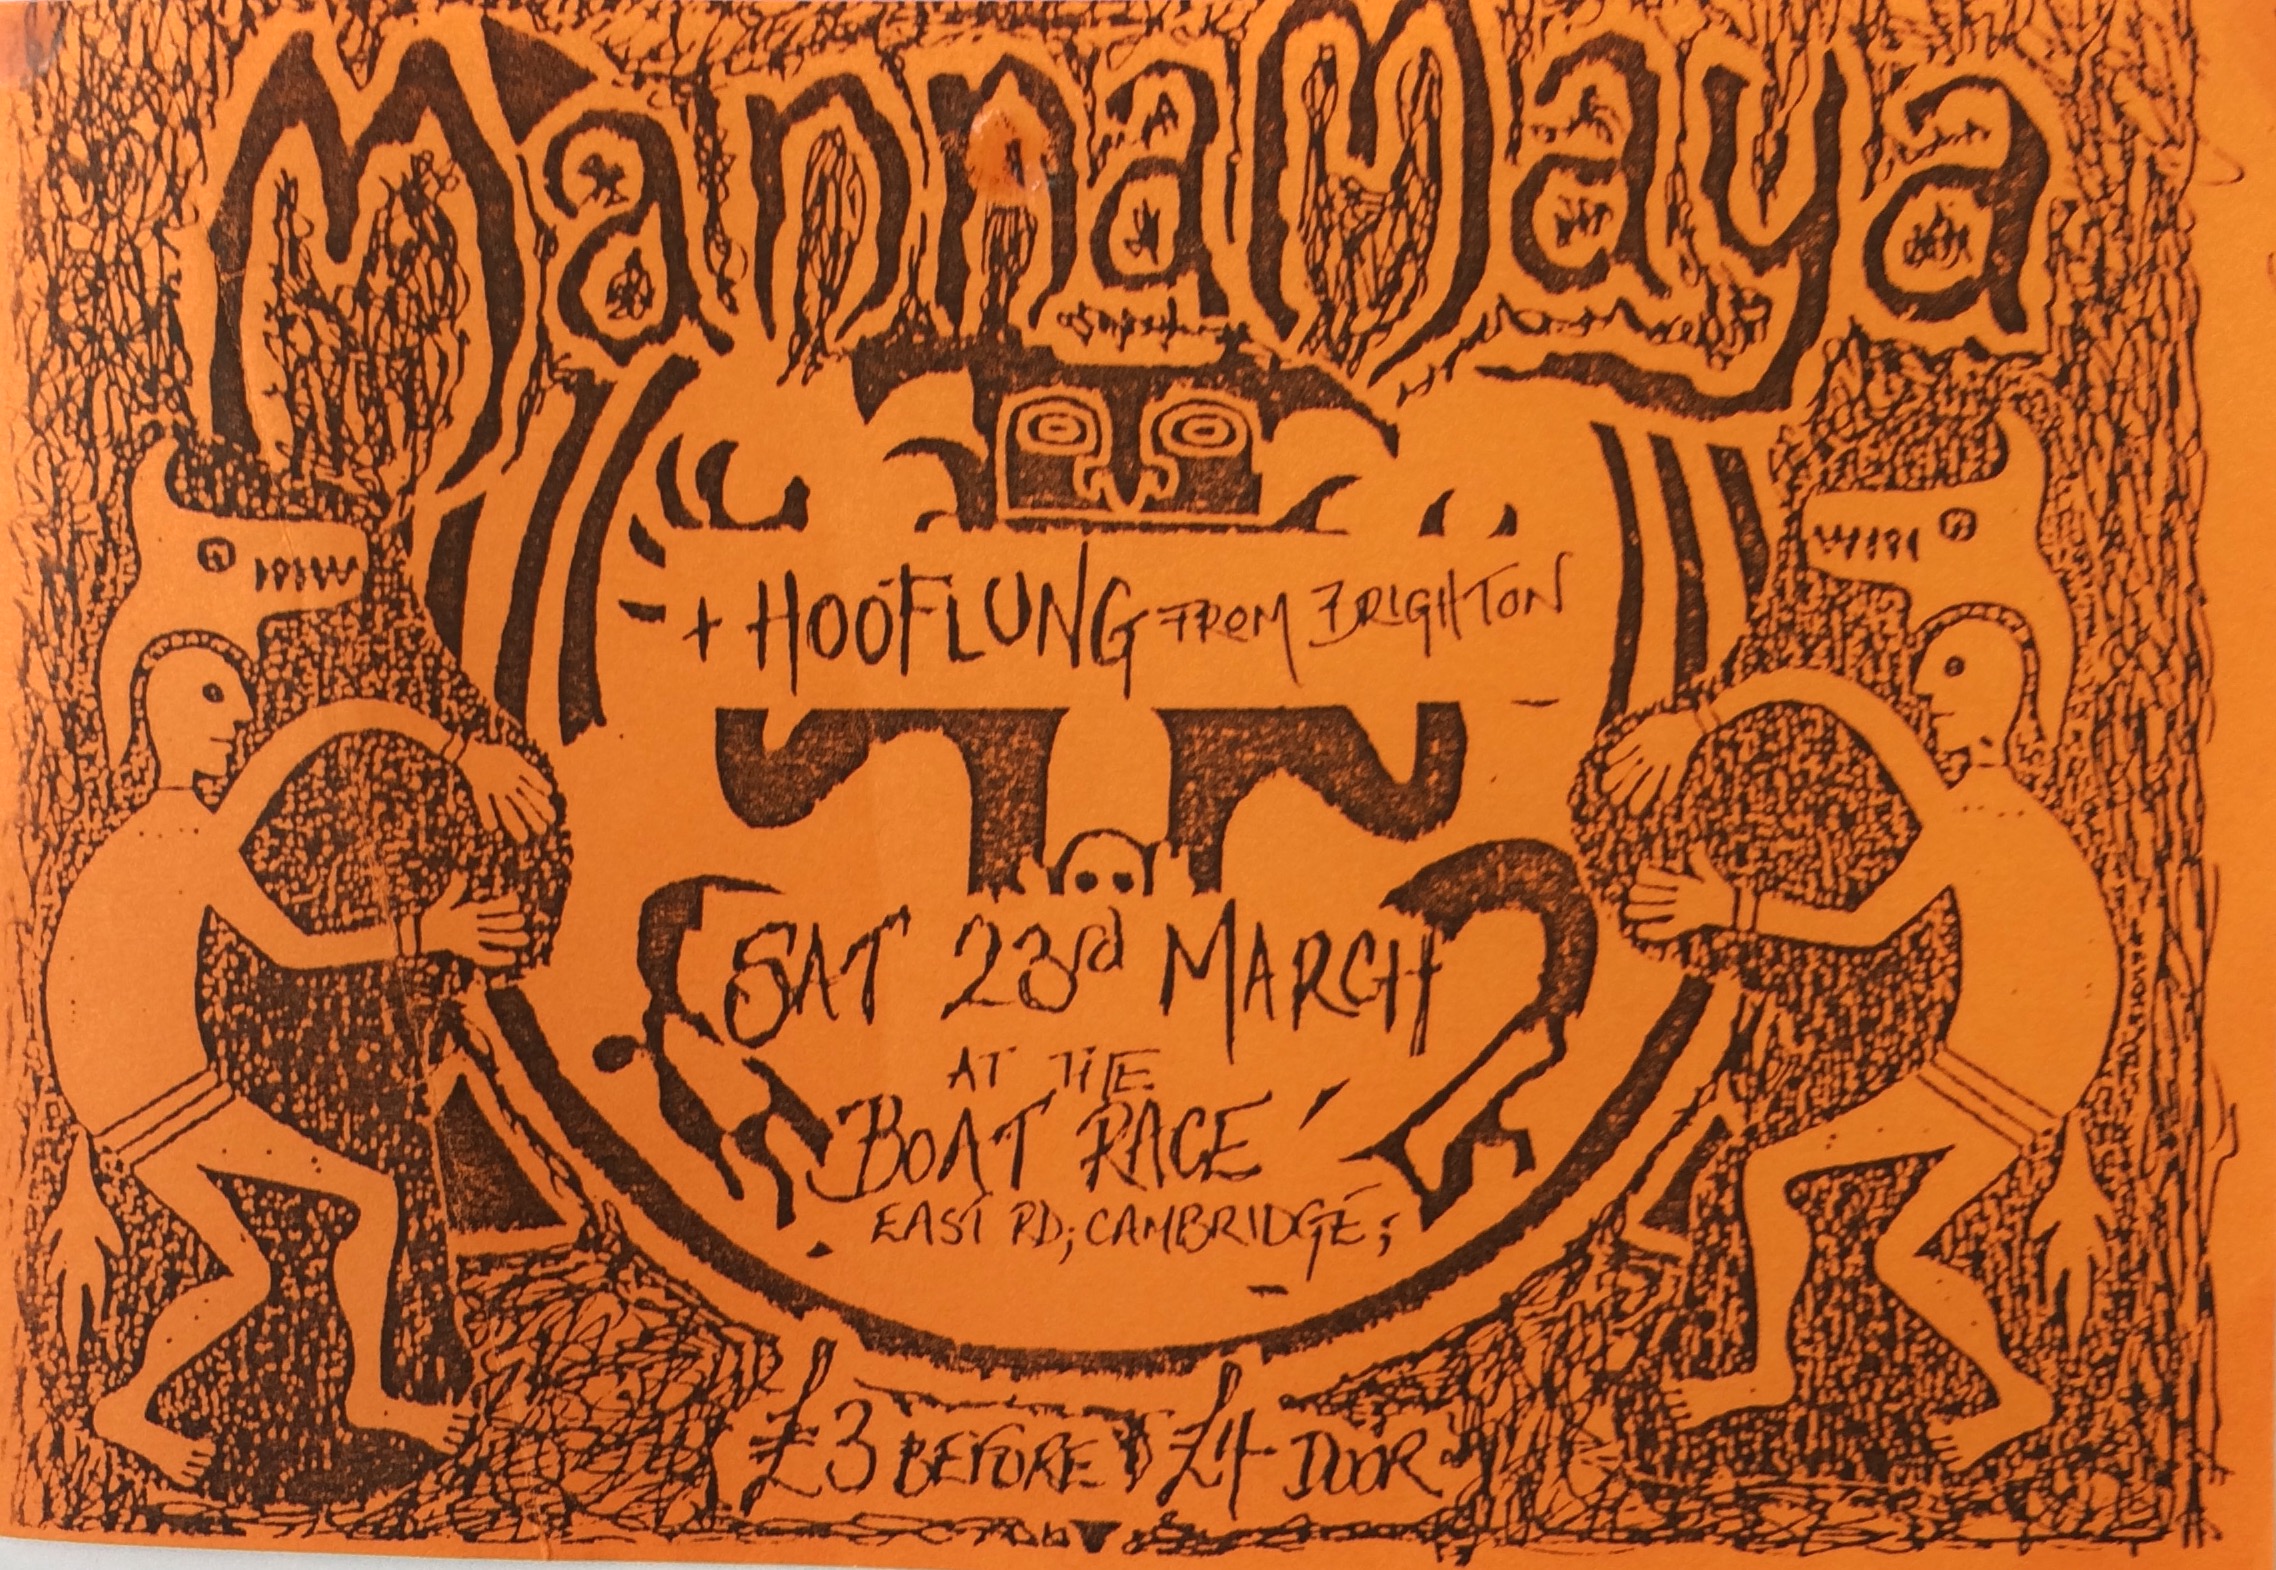 MannaMaya
+ HOOFLUNG FROM BRIGHTON
SAT 23rd MARCH
AT THE
BOAT RACE
EAST RD; CAMBRIDGE;
£3 BEFORE £4 DOOR